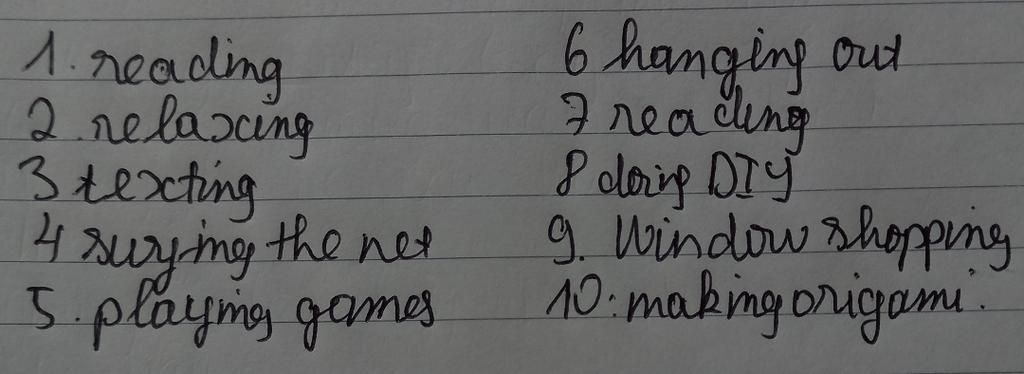 1. reading
2. relaxing
3 texting
4 surfing the net
5. playing games
6 hanging out
7 reading
8 doing DIY
9. Window shopping
10. making origami.